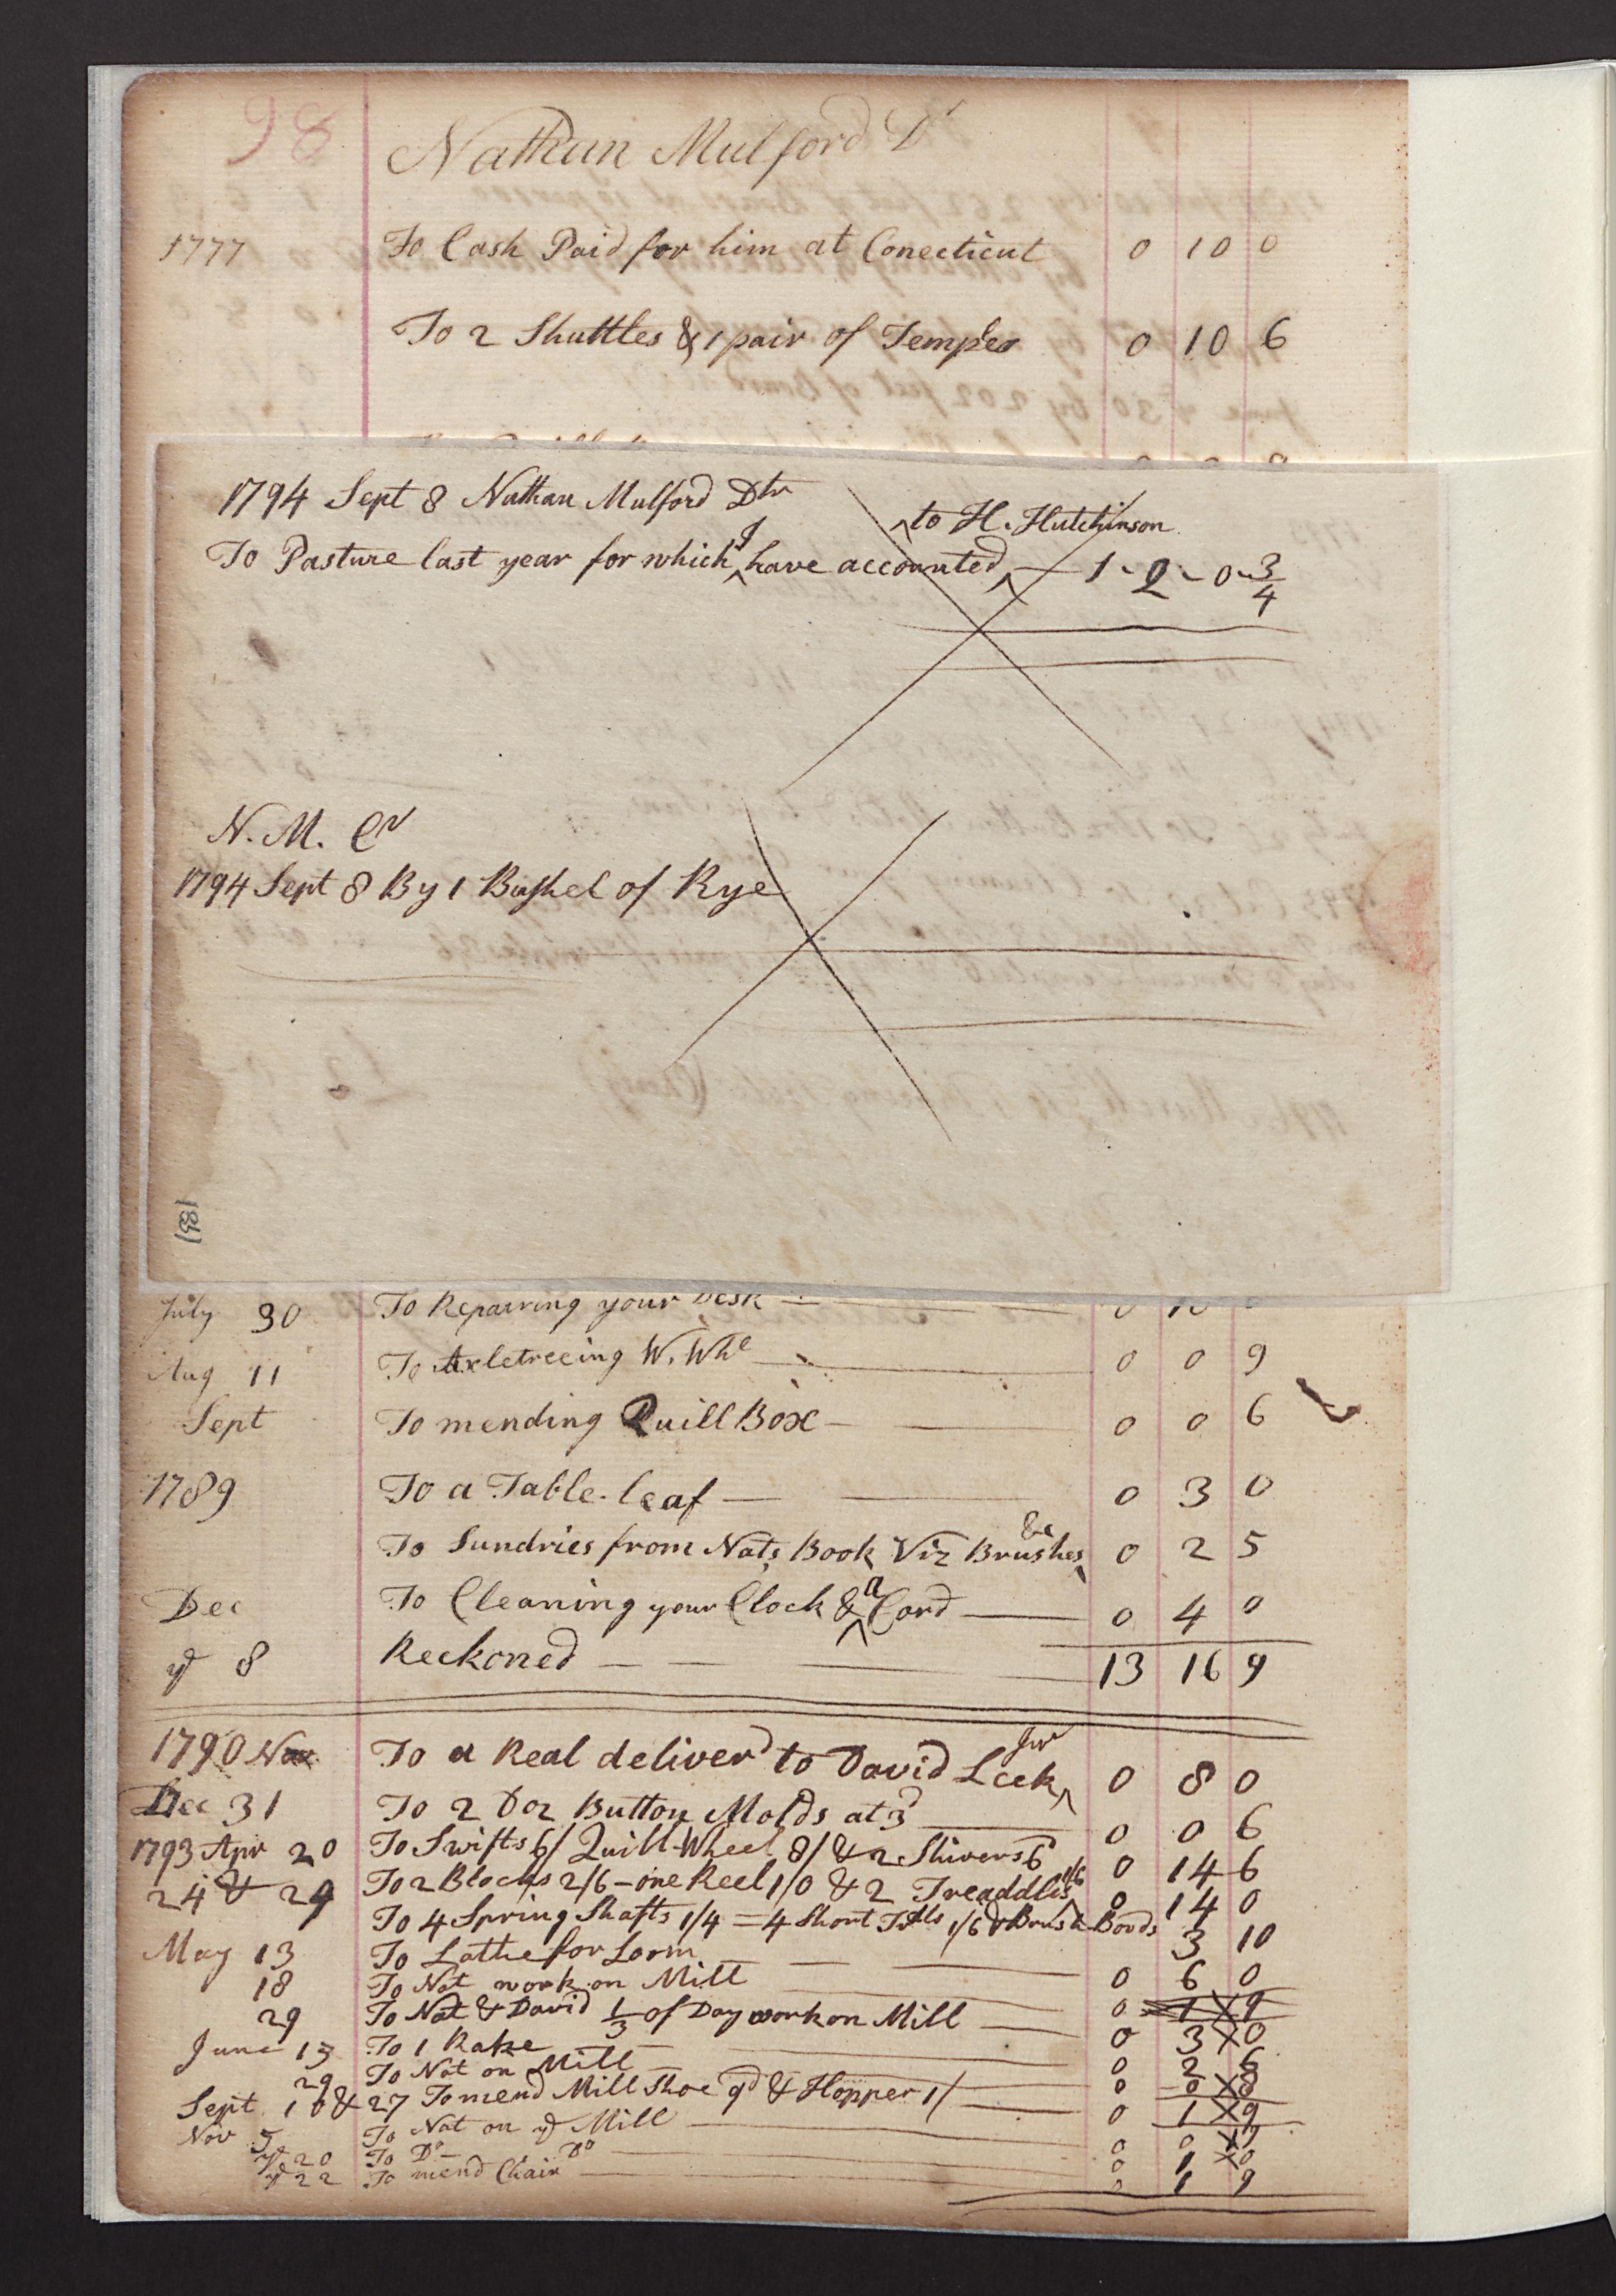 98
Nathan Mulford Dr
1777 To Cash Paid for him at Conecticut 0 10 0
To 2 Shuttles & 1 pair of Temples 0 10 6
1794 Sept 8 Nathan Mulford Dtr
To Pasture last year for which I have accounted to H. Hutchinson — 1 - 2 - 0 3/4
N. M. Cr
1794 Sept 8 By 1 Bushel of Rye
July 30 To Repairing your Desk — 0 10
Aug 11 To Axletreeing W. Whe — 0 0 9
Sept To mending Quill Box — 0 0 6
1789 To a Table-leaf — 0 3 0
To Sundries from Nats Book Viz Brushes &c 0 2 5
Dec To Cleaning your Clock & a Cord — 0 4 0
ye 8 Reckoned — 13 16 9
1790 Nov To a Real deliverd to David Leek Jur 0 8 0
Dec 31 To 2 Doz Button Molds at 3d 0 0 6
1793 Apr 20 To Swifts 6/ Quill-Wheel 8/ & 2 Shivers 6d 0 14 6
24 & 29 To 2 Blocks 2/6 – one Reel 1/0 & 2 Treaddles 1/6 0 14 0
To 4 Spring Shafts 1/4 = 4 Short 1/6 & Brush Bords 3 10
May 13 To Lathe for Loom — 0 6 0
18 To Nat work on Mill — 0 1 9
29 To Nat & David 1/3 of Day work on Mill — 0 3 0
June 13 To 1 Rake — 0 2 6
29 To Nat on Mill — 0
Sept 18 & 27 To mend Mill Shoe 9d & Hopper 1/ — 0 1 9
Nov 5 To Nat on ye Mill — 0 0
ye 20 To Do — Do — 0 1 0
ye 22 To mend Chair — 0 1 9